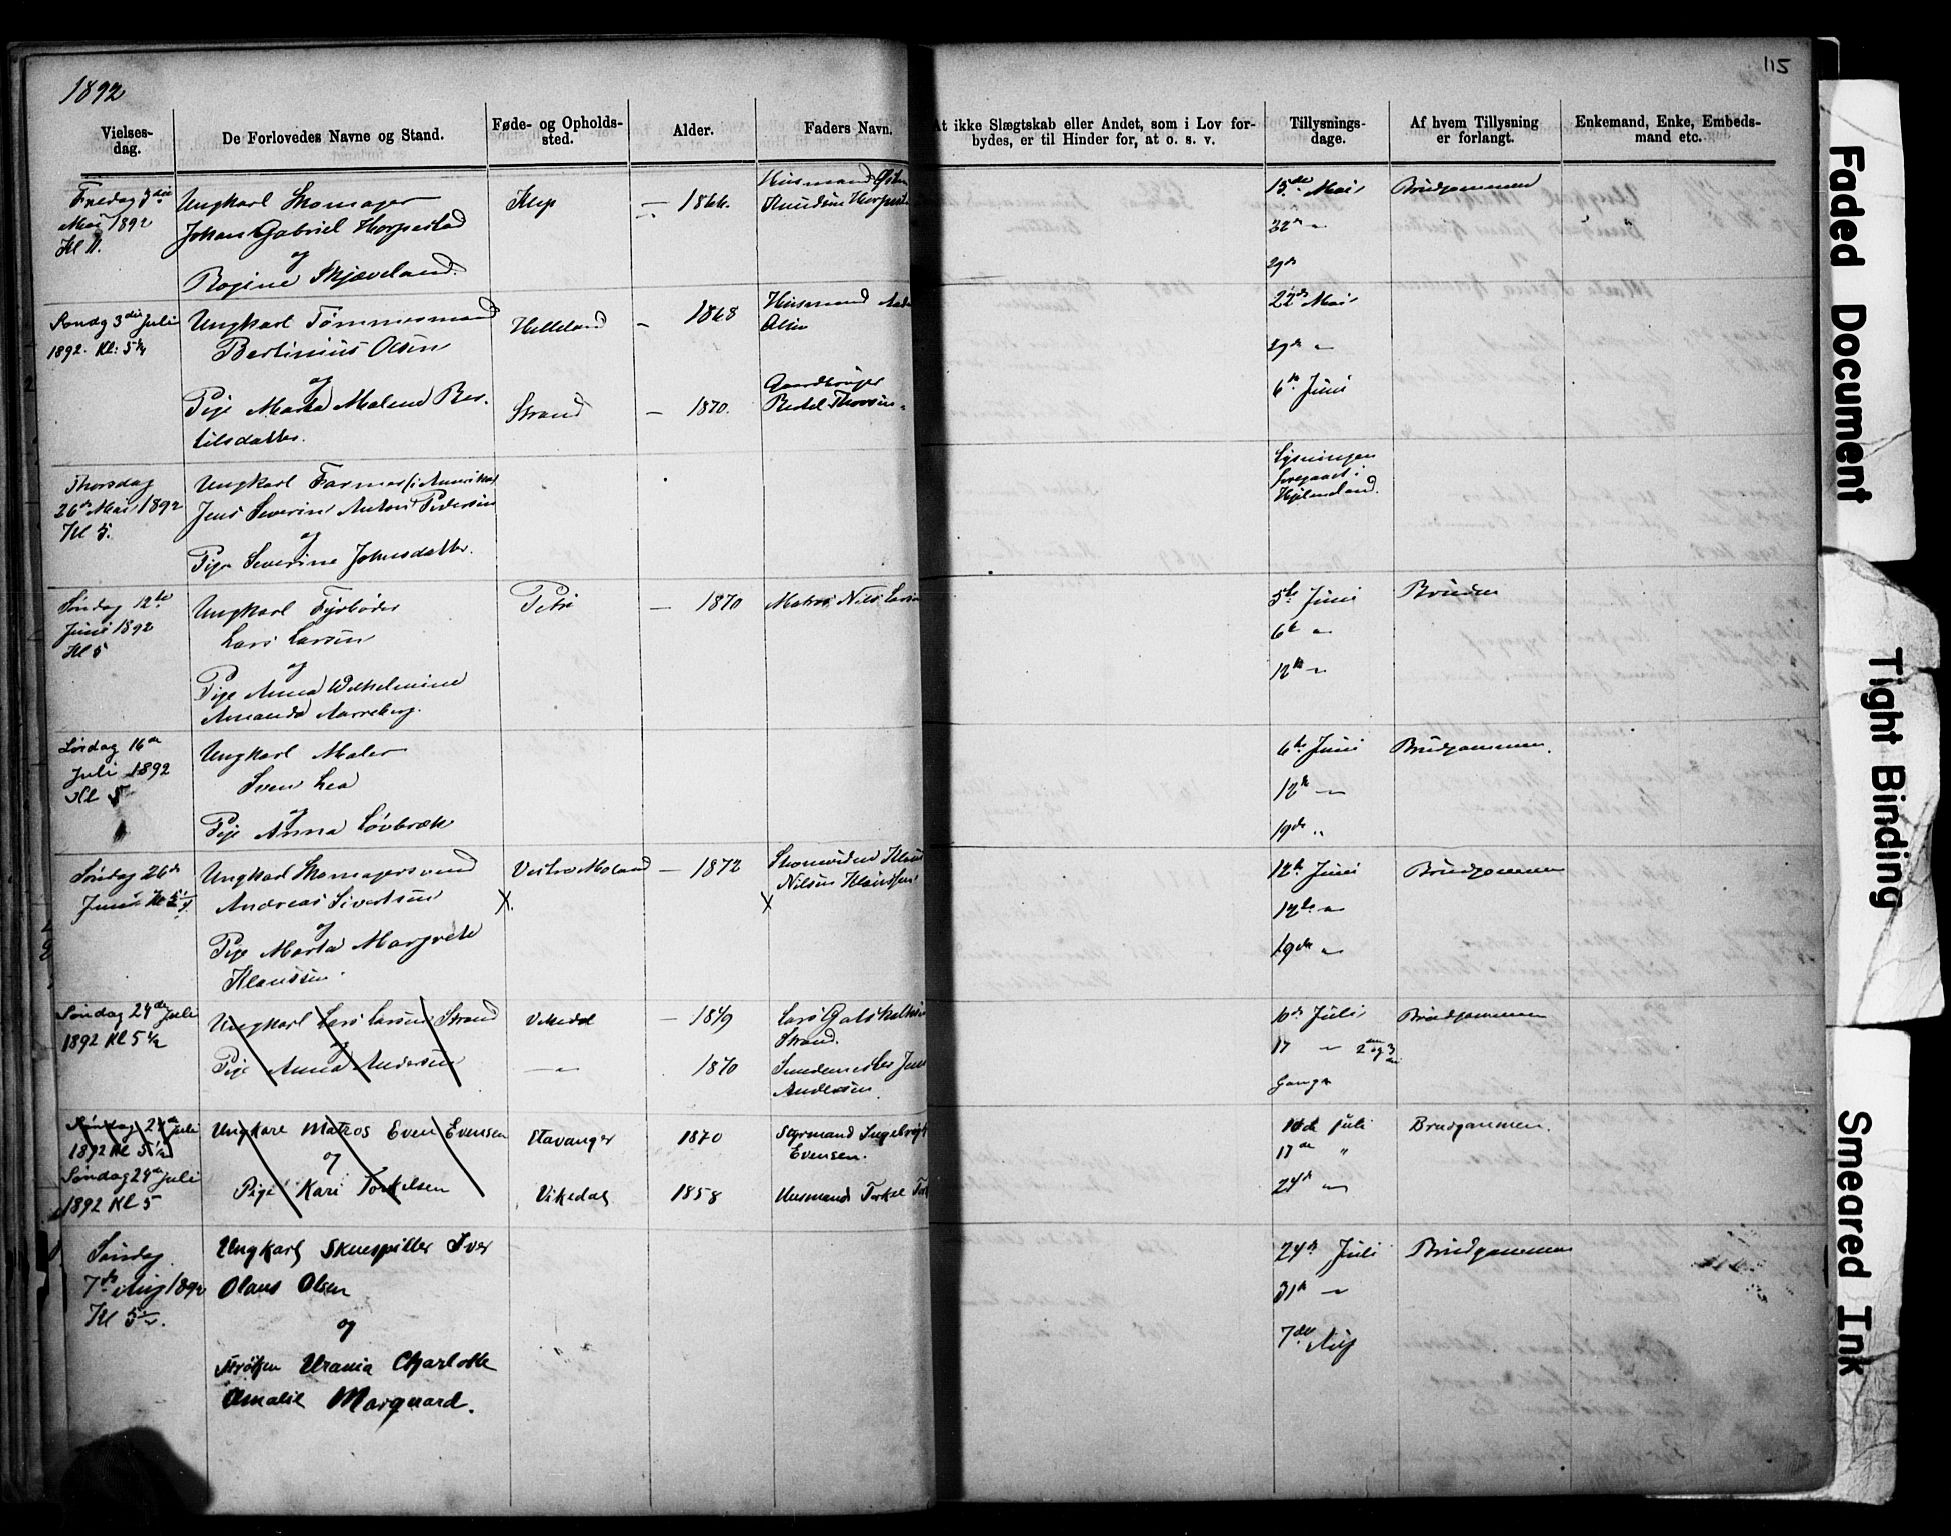 1892
115
Vielses-
dag.
De Forlovedes Navne og Stand.
Føde- og Opholds-
sted.
Alder.
Faders Navn.
At ikke Slægtskab eller Andet, som i Lov for-
bydes, er til Hinder for, at o. s. v.
Tillysnings-
dage.
Af hvem Tillysning
er forlangt.
Enkemand, Enke, Embeds-
mand etc.
Fredag
1892
Kl
Ungkarl Skomager
Johan Gabriel Horpestad
og
Rogine Skjæveland.
Klep
— 1866.
Husmand
Knudsen
15de Mai
22de "
29de
Brudgommen
Søndg 3die Juli
1892. Kl: 5½
Ungkarl Tømmermand
Bertinius Olsen
og
Pige Marta Malene Ber-
tilsdatter.
Helleland
Strand
— 1868
— 1870.
Husmand
Olsen
Gaardbruger
Bertel
22de Mai
29de "
6te Juni
Thorsdag
26de Mai 1892
Kl 5.
Ungkarl Farmer (i Amerika)
Jens Severin Anton Pedersen
og
Pige Severine Johnsdatter.
Lysningen
foregaaet i
Hjelmeland.
Søndag 12te
Juni 1892
Kl 5
Ungkarl Fyrbøder
Lars Larsen
og
Pige Anna Wilhelmine
Amanda Aarreberg.
Petri
— 1870
Matros Nils Larsen
5te Juni
6te "
12te "
Bruden
Lørdag 16de
Juli 1892
Kl 5
Ungkarl Maler
Sven Lea
og
Pige Anna Løvbræk
6te Juni
12te "
19de "
Brudgommen.
Søndag 26de
Juni Kl 5½
Ungkarl Skomagersvend
Andreas Sivertsen
og
Pige Marta Margrete
Klaussen.
Vestre Moland
X.
— 1872
Nilsen Klaussen
X
12te Juni
12te "
19de "
Brudgommen
Søndag 24de Juli
1892 Kl 5½
Ungkarl Lars Larsen Strand
og
Pige Anna Andersen
Vikedal
— " —
— 1869
1870
Lars
Strand.
Andersen.
10de Juli
17 " 2den og 3die
Gang
Brudgommen
Søndag 24de Juli
1892 Kl 5½
Søndag 24de Juli
1892 Kl 5
Ungkarl Matros Even Evensen
og
Pige Kari Torkelsen
Stavanger
Vikedal
1870
1858
Styrmand Ingebrigt
Evensen.
Husmand Torkel
10de Juli
17de "
24de "
Brudgommen.
Søndag
7de Aug 1892
Kl 5½.
Ungkarl Skuespiller Iver
Olaus Olsen
og
Frøken Urania Charlotte
Amalie Marquard.
24de Juli
31te "
7de Aug
Brudgommen
Faded Document
Tight Binding
Smeared Ink